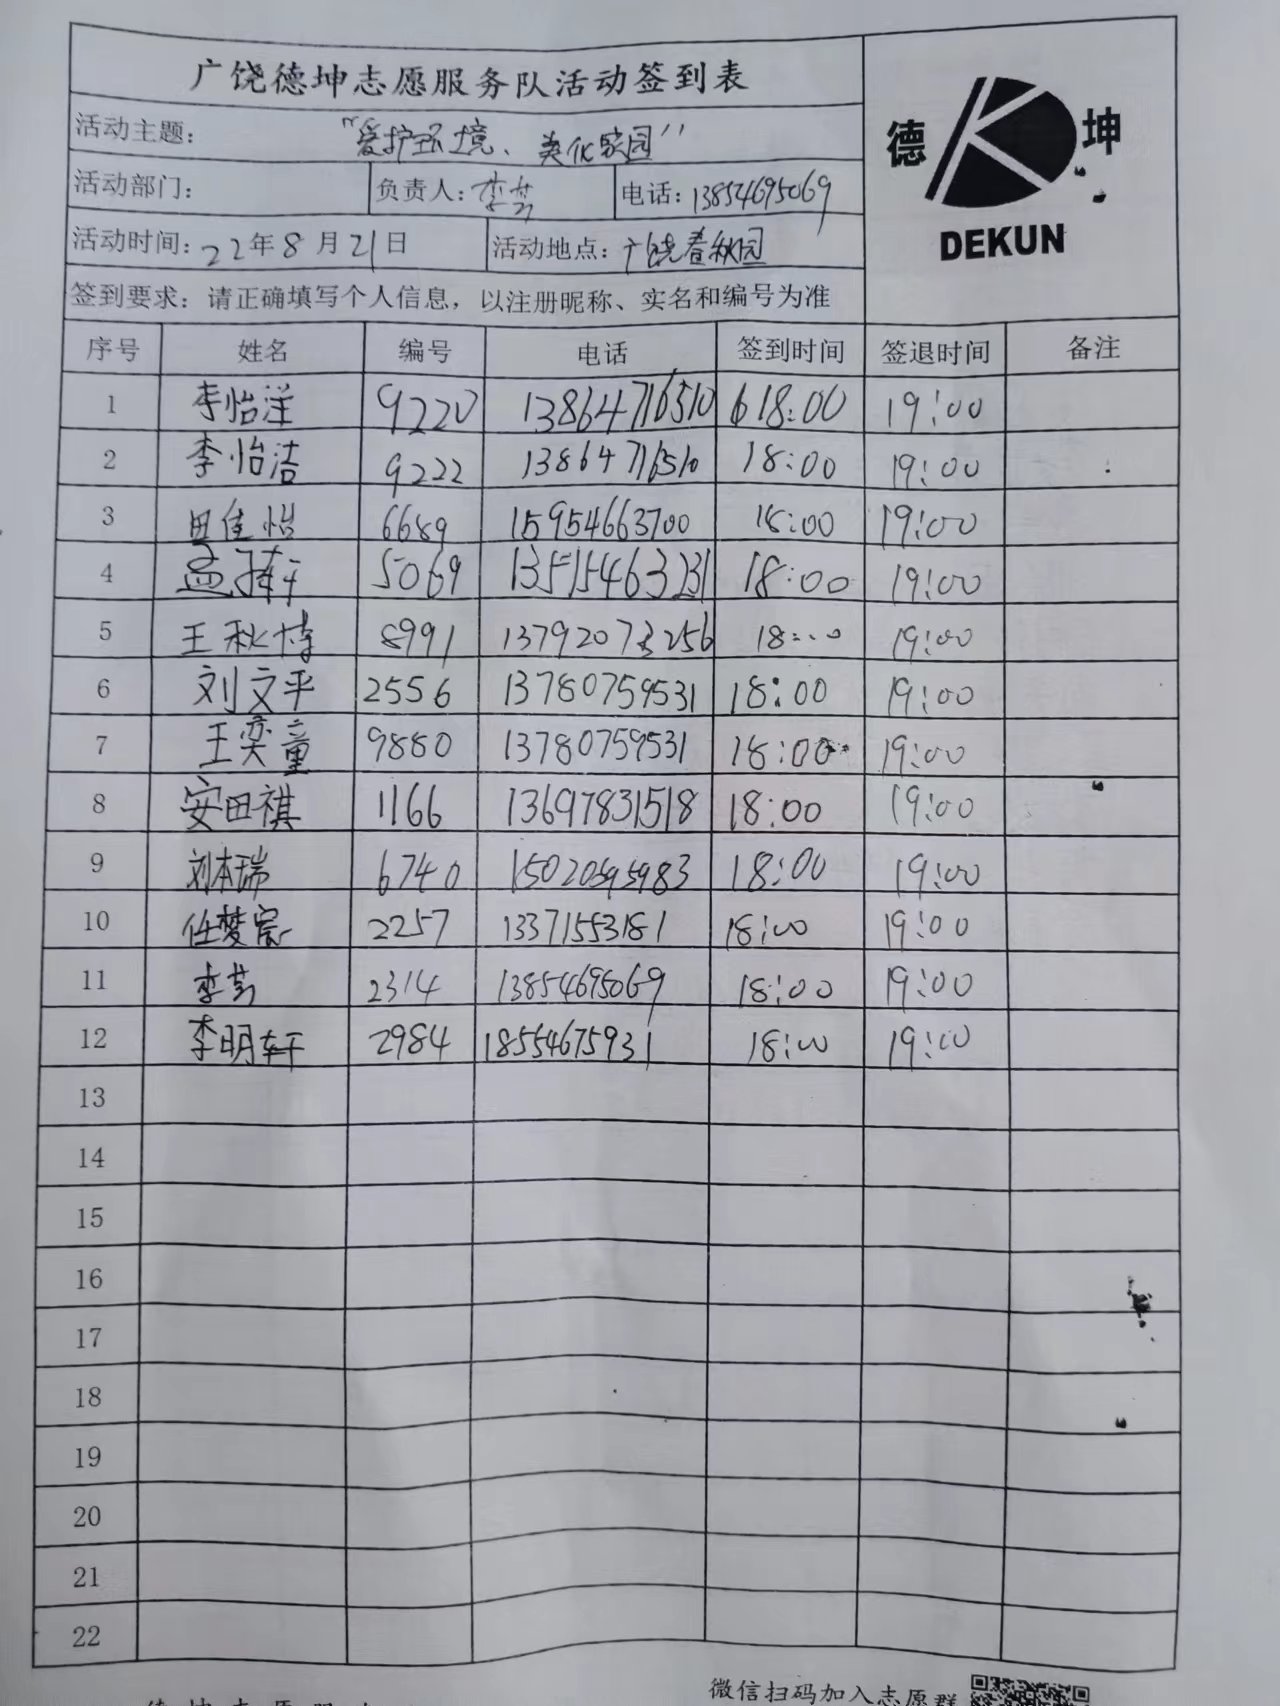 广饶德坤志愿服务队活动签到表
活动主题: "爱护环境、美化家园"
活动部门: 负责人: 李芸 电话: 13854695069
活动时间: 22年8月21日 活动地点: 广饶春秋园
签到要求: 请正确填写个人信息，以注册昵称、实名和编号为准
德 坤
DEKUN
序号 姓名 编号 电话 签到时间 签退时间 备注
1 李怡洋 9220 13864716510 618:00 19:00
2 李怡洁 9222 13864716510 18:00 19:00
3 田佳怡 6689 15954663700 18:00 19:00
4 孟 5069 13515463231 18:00 19:00
5 王秋博 8991 13792073256 18:00 19:00
6 刘文平 2556 13780759531 18:00 19:00
7 王奕童 9880 13780759531 18:00 19:00
8 安田祺 1166 13697831518 18:00 19:00
9 刘本瑞 6740 15020595983 18:00 19:00
10 任梦宸 2257 13371553181 18:00 19:00
11 李芸 2314 13854695069 18:00 19:00
12 李明轩 2984 18554675931 18:00 19:00
13
14
15
16
17
18
19
20
21
22
微信扫码加入志愿群